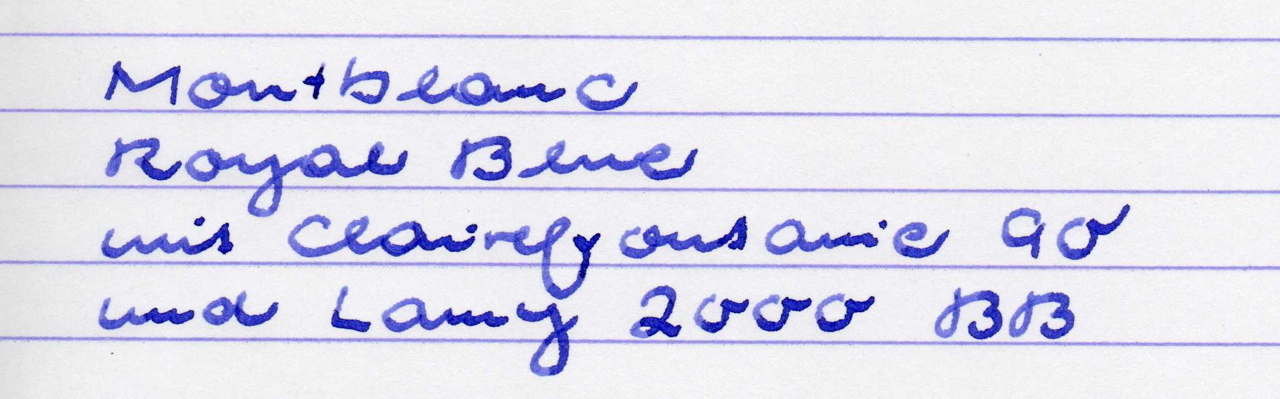 Montblanc
Royal Blue
mit Clairefontaine 90
und Lamy 2000 BB